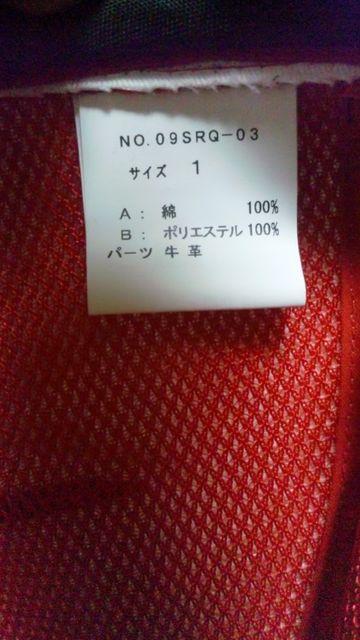 NO.09SRQ-03
サイズ 1
A: 綿 100%
B: ポリエステル 100%
パーツ 牛革